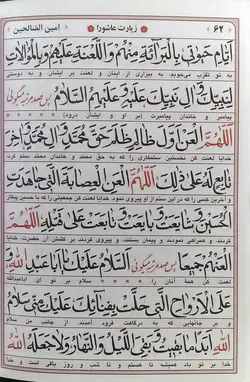 ۶۲ زیارت عاشورا امین الصالحین
اَیّامِ حَیٰوتی بِالْبَرآئَةِ مِنْهُمْ وَاللَّعْنَةِ عَلَیْهِمْ وَبِالْمُوالاتِ
به تو تقرب می‌جویم، به بیزاری از اینان و لعنت بر ایشان، و به دوستی
لِنَبِیِّکَ وَآلِ نَبِیِّکَ عَلَیْهِ وَعَلَیْهِمُ السَّلامُ پس صد مرتبه میگوئی
پیامبر و خاندان پیامبرت (بر او و ایشان درود)
اَللّهُمَّ الْعَنْ اَوَّلَ ظالِمٍ ظَلَمَ حَقَّ مُحَمَّدٍ وَآلِ مُحَمَّدٍ وَآخِرَ
خدایا لعنت کن نخستین ستمکاری را که به حق محمد و خاندان محمد ستم کرد
تابِعٍ لَهُ عَلی ذلِکَ اَللّهُمَّ الْعَنِ الْعِصابَةَ الَّتی جاهَدَتِ
و آخرین کسی را که در این ستم از او پیروی نمود خدایا لعنت کن جمعیتی را که با حسین پیکار
الْحُسَیْنَ وَشایَعَتْ وَبایَعَتْ وَتابَعَتْ عَلی قَتْلِهِ اَللّهُمَّ
کردند و همراهی نمودند و پیمان بستند و پیروی کردند بر کشتن آن حضرت، خدایا
الْعَنْهُمْ جَمیعاً پس صد مرتبه میگوئی اَلسَّلامُ عَلَیْکَ یا اَبا عَبْدِاللهِ وَ
لعنت کن همه آنان را سلام بر تو ای اباعبدالله
عَلَی الْاَرْواحِ الَّتی حَلَّتْ بِفِنائِکَ عَلَیْکَ مِنّی سَلامُ
و بر جانهایی که به درگاهت فرود آمدند، از جانب من سلام
اللهِ اَبَداً ما بَقیتُ وَبَقِیَ اللَّیْلُ وَالنَّهارُ وَلا جَعَلَهُ اللهُ
خدا بر تو باد همیشه تا هستم و تا شب و روز باقی است و خدا